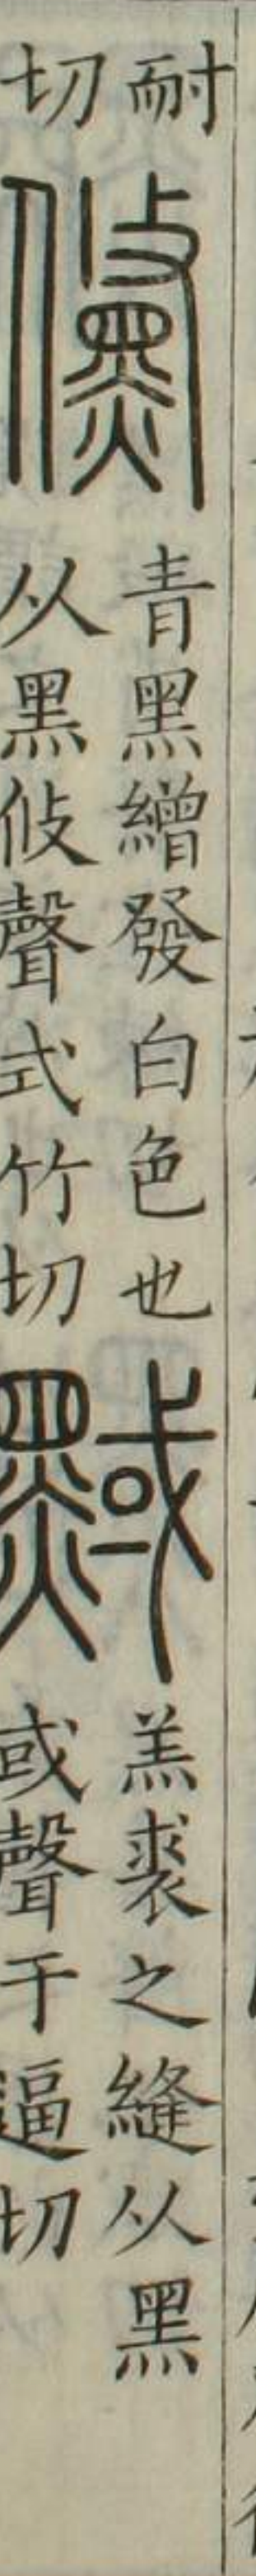 耐
切
儵
青黑繒發白色也
从黑攸聲式竹切
黬
羔裘之縫从黑
或聲于逼切